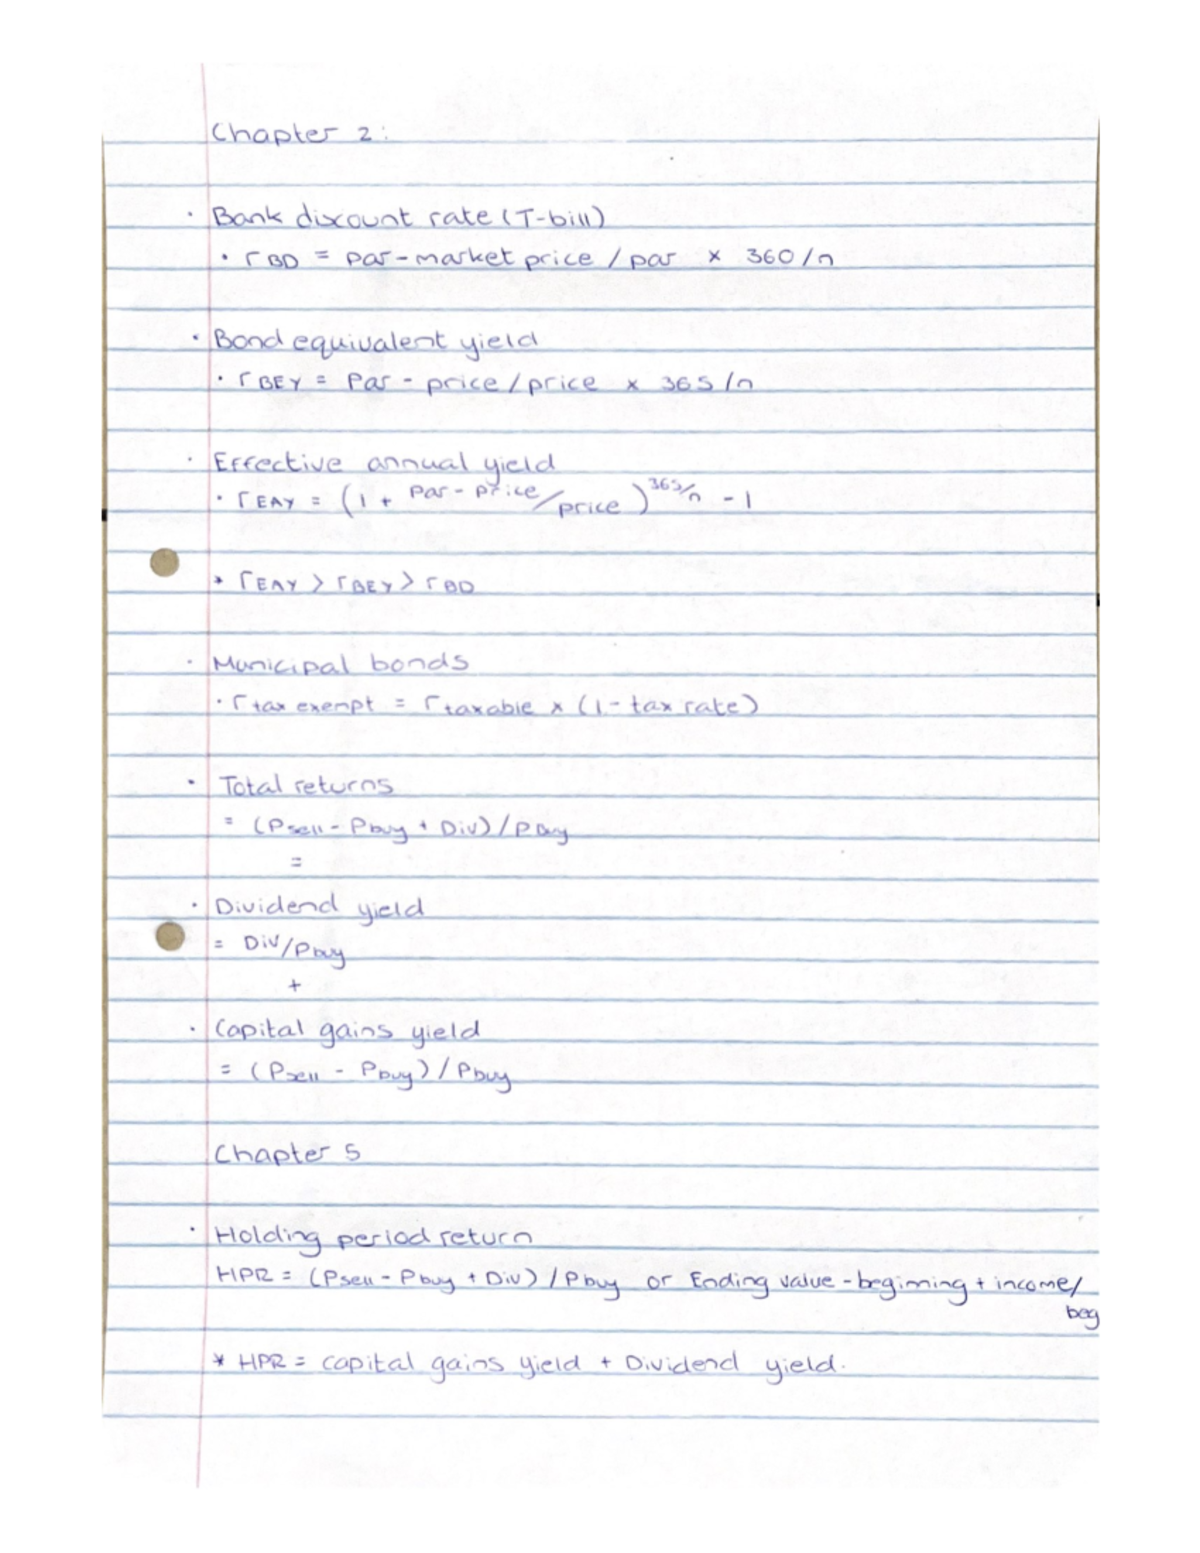 Chapter 2:
· Bank discount rate (T-bill)
· rBD = par - market price / par × 360/n
· Bond equivalent yield
· rBEY = Par - price / price × 365/n
· Effective annual yield
· rEAY = (1 + par - price/price)^365/n - 1
* rEAY > rBEY > rBD
· Municipal bonds
· rtax exempt = rtaxable × (1 - tax rate)
· Total returns
= (Psell - Pbuy + Div) / Pbuy
=
· Dividend yield
= Div/Pbuy
+
· Capital gains yield
= (Psell - Pbuy) / Pbuy
Chapter 5
· Holding period return
HPR = (Psell - Pbuy + Div) / Pbuy or Ending value - beginning + income/
beg
* HPR = capital gains yield + Dividend yield.